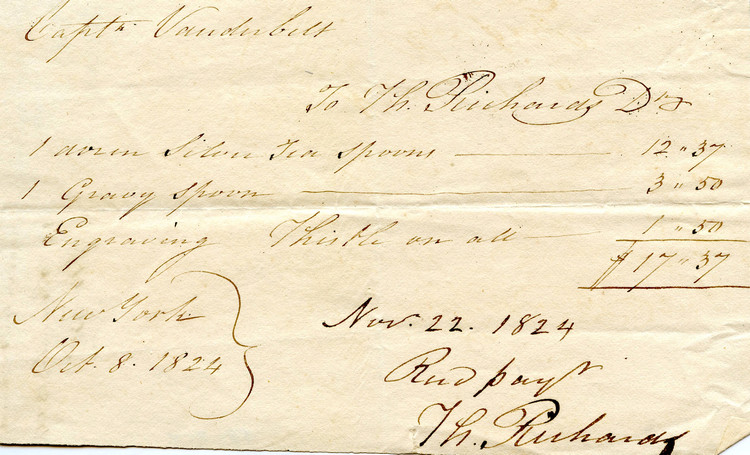 Captn Vanderbelt
To Th. Richards Dr
1 dozen Silver Tea Spoons 12 " 37
1 Gravy spoon 3 " 50
Engraving Thistle on all 1 " 50
$ 17 " 37
New York
Oct. 8. 1824
Nov. 22. 1824
Recd payt
Th. Richards